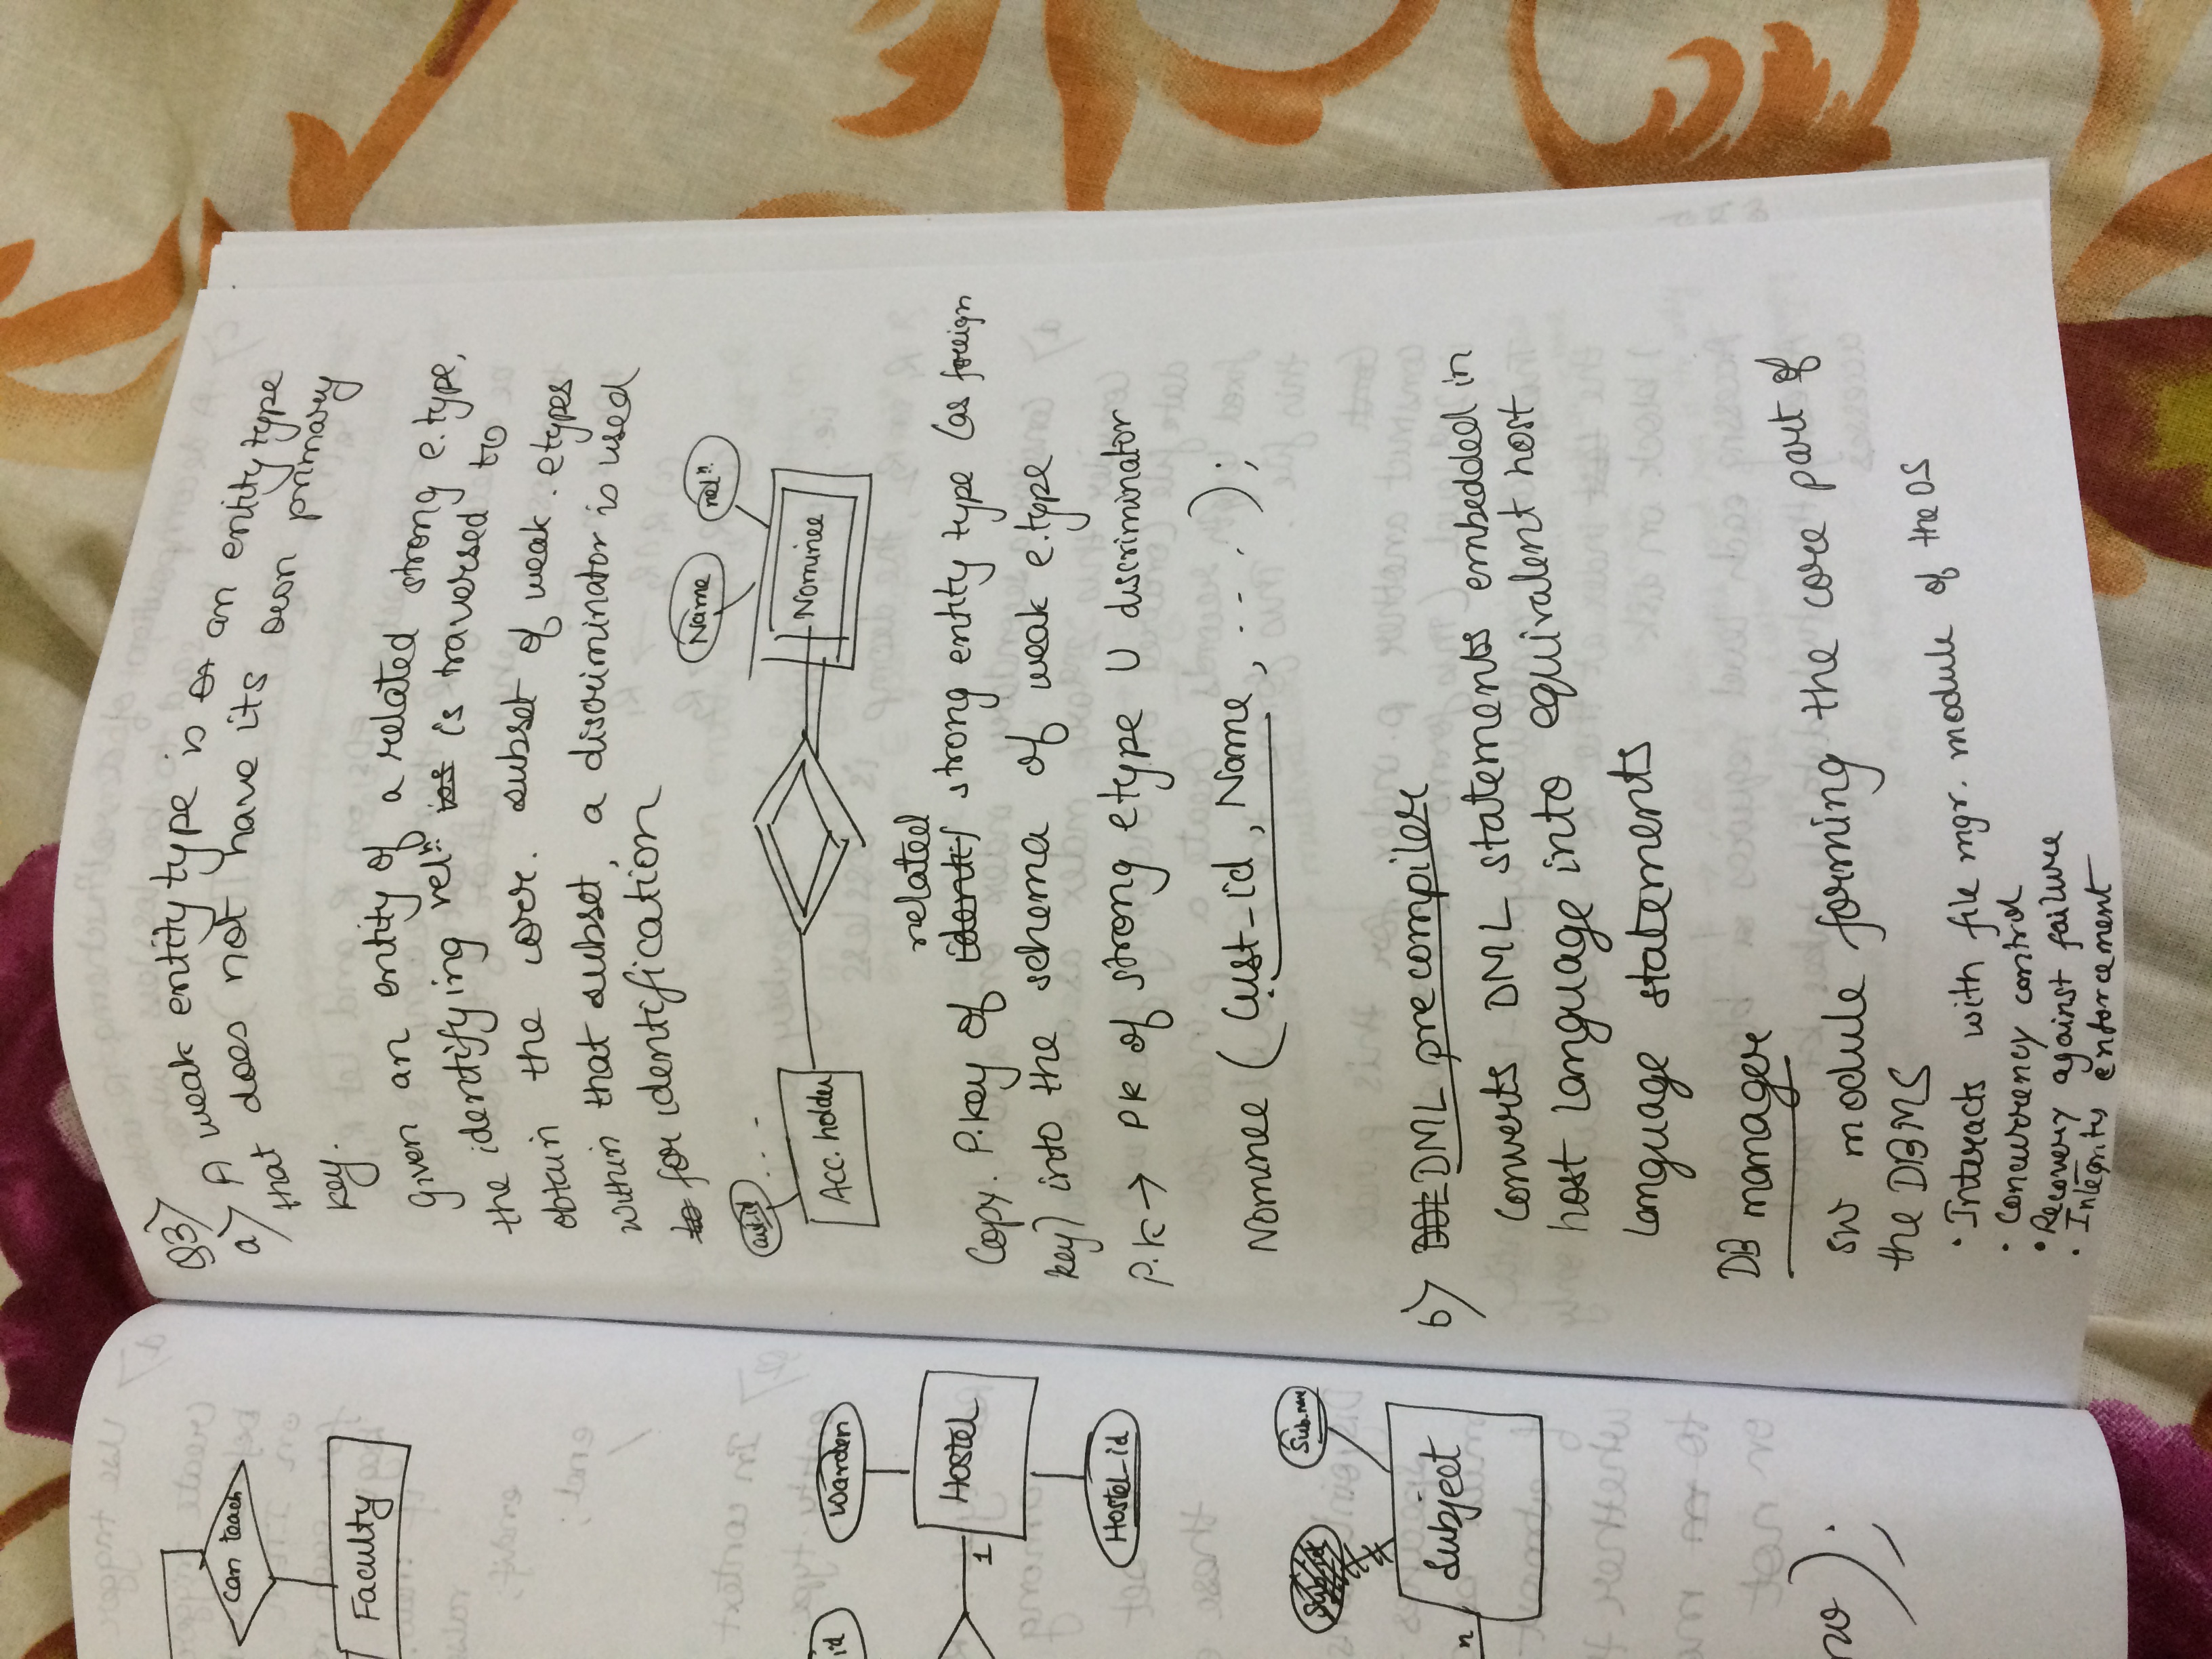 can teach
Faculty
id
Warden
Hostel
1
Hostel_id
Sub_id
Sub.name
Subject
n
no);
Q3)
a) A weak entity type is an entity type
that does not have its own primary
key.
Given an entity of a related strong e.type,
the identifying relⁿ. is traversed to
obtain the corr. subset of weak. etypes
within that subset, a discriminator is used
to for identification
Name
relⁿ.
Cust-id ...
Acc. holder
Nominee
related
Copy. P.key of identif strong entity type (as foreign
key) into the schema of weak e.type
P.K → PK of strong etype U discriminator
Nominee (Cust_id, Name, ....);
b) DDL DML precompiler
Converts DML statements embedded in
host language into equivalent host
language statements
DB manager
SW module forming the core part of
the DBMS
• Interacts with file mgr. module of the OS
• Concurrency control
• Recovery against failure
• Integrity enforcement